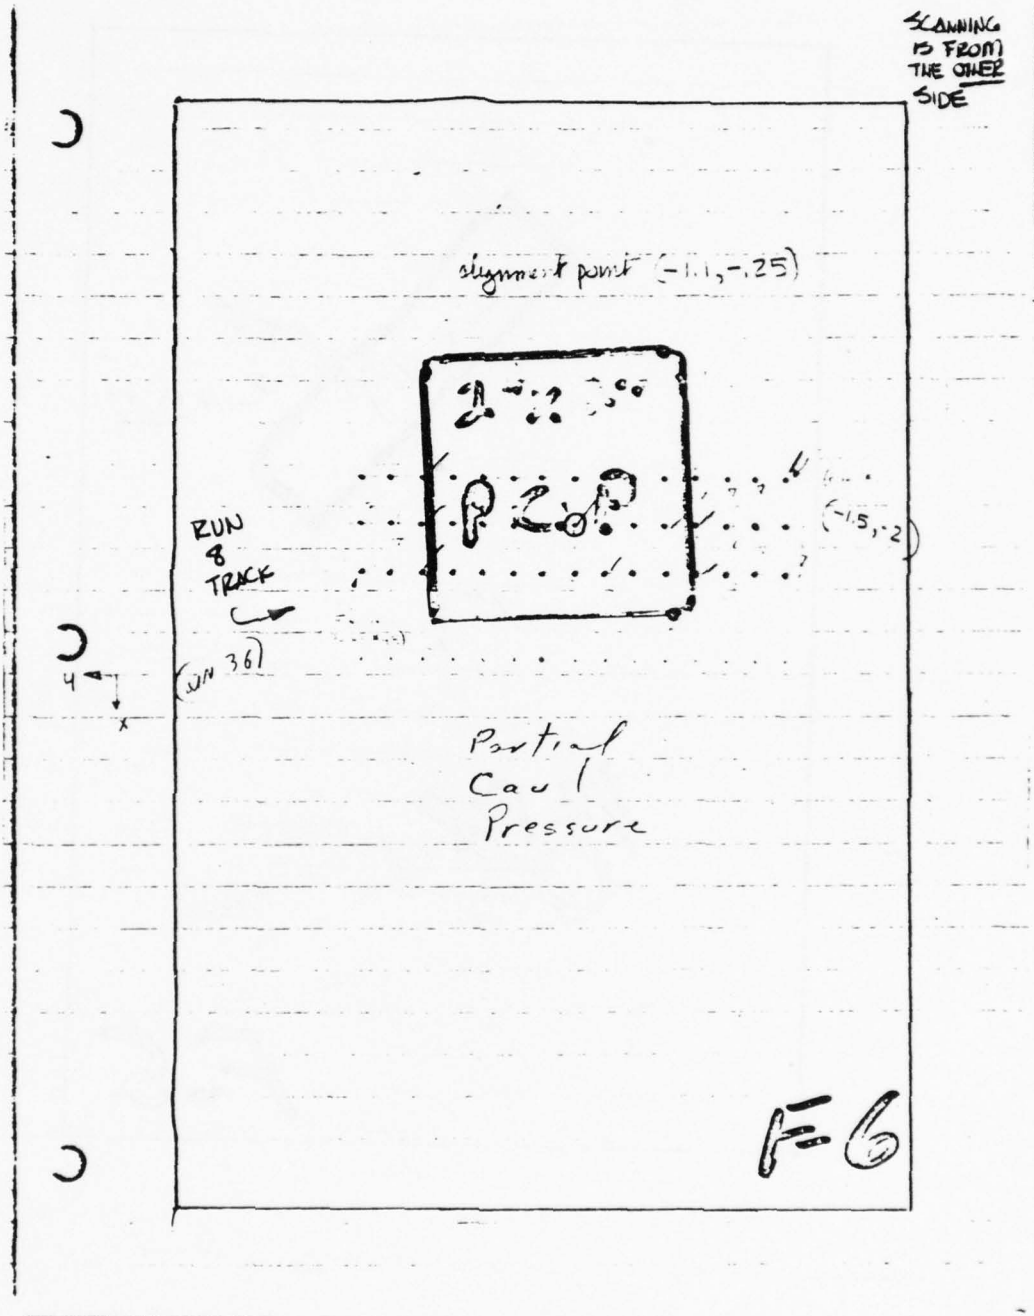 SCANNING
IS FROM
THE OTHER
SIDE
alignment point (-1.1, -.25)
P C P
(-1.5, -2)
RUN
8
TRACK
(RUN 36)
y
x
Partial
Caul
Pressure
F=6